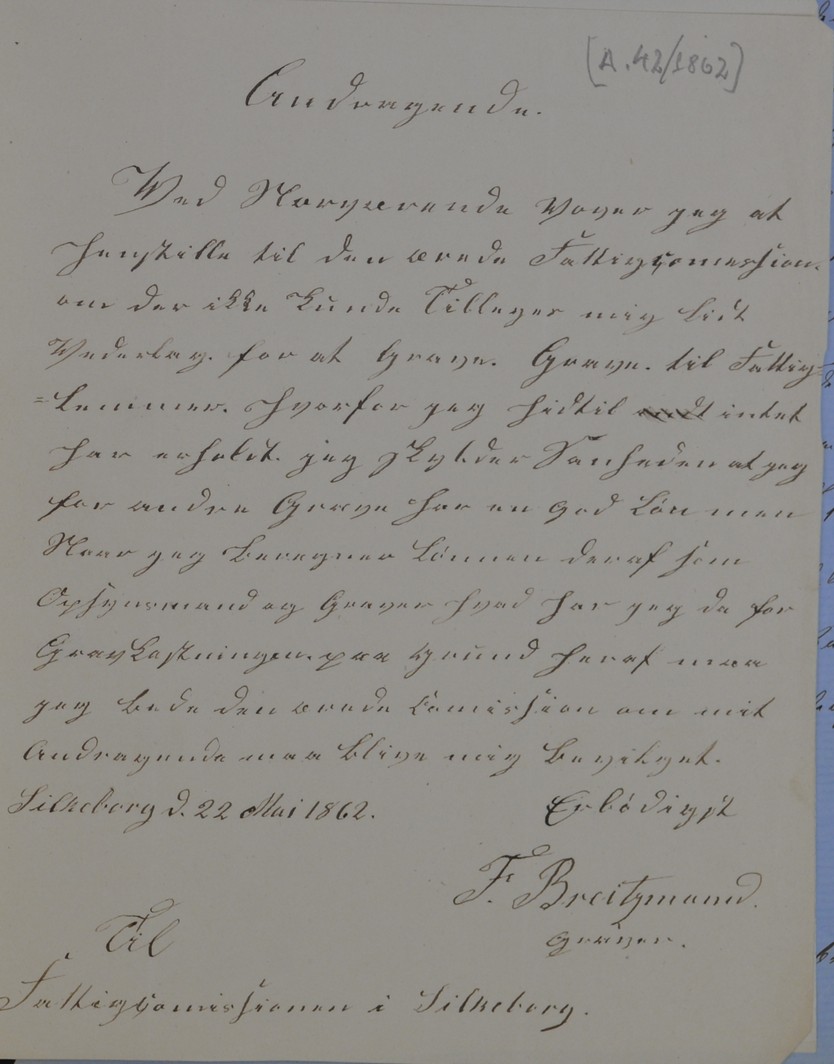 [A.42/1862]
Andragende.
Ved Nærværende vover jeg at
henstille til den ærede Fattigcomession.
om der ikke kunde Tillegges mig lidt
Vederlag. for at Grave. Grave. til Fattig=
=Lemmer. hvorfor jeg hidtil intet
har erholdt. jeg skylder Sanheden at jeg
for andre Grave har en god Løn men
Naar jeg beregner Lønnen deraf som
Opsynsmand og Graver hvad har jeg da for
GravKastningen. paa Grund heraf maa
jeg bede den ærede Comission om mit
Andragende maa blive mig beviliget.
Silkeborg d. 22 Mai 1862.
Erbødigst
F. Breitzmand.
Graver.
Til
Fattigcomissionen i Silkeborg.